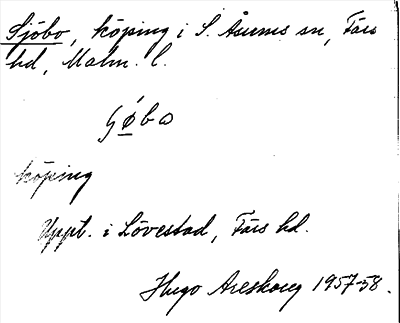 Sjöbo, köping i S. Åsums sn, Färs
hd, Malm. l.
ʃǿba
köping
Uppt. i Lövestad, Färs hd.
Hugo Areskoug 1957-58.